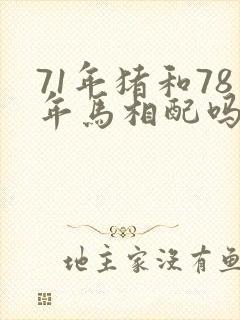 71年猪和78
年馬相配吗
地主家没有鱼